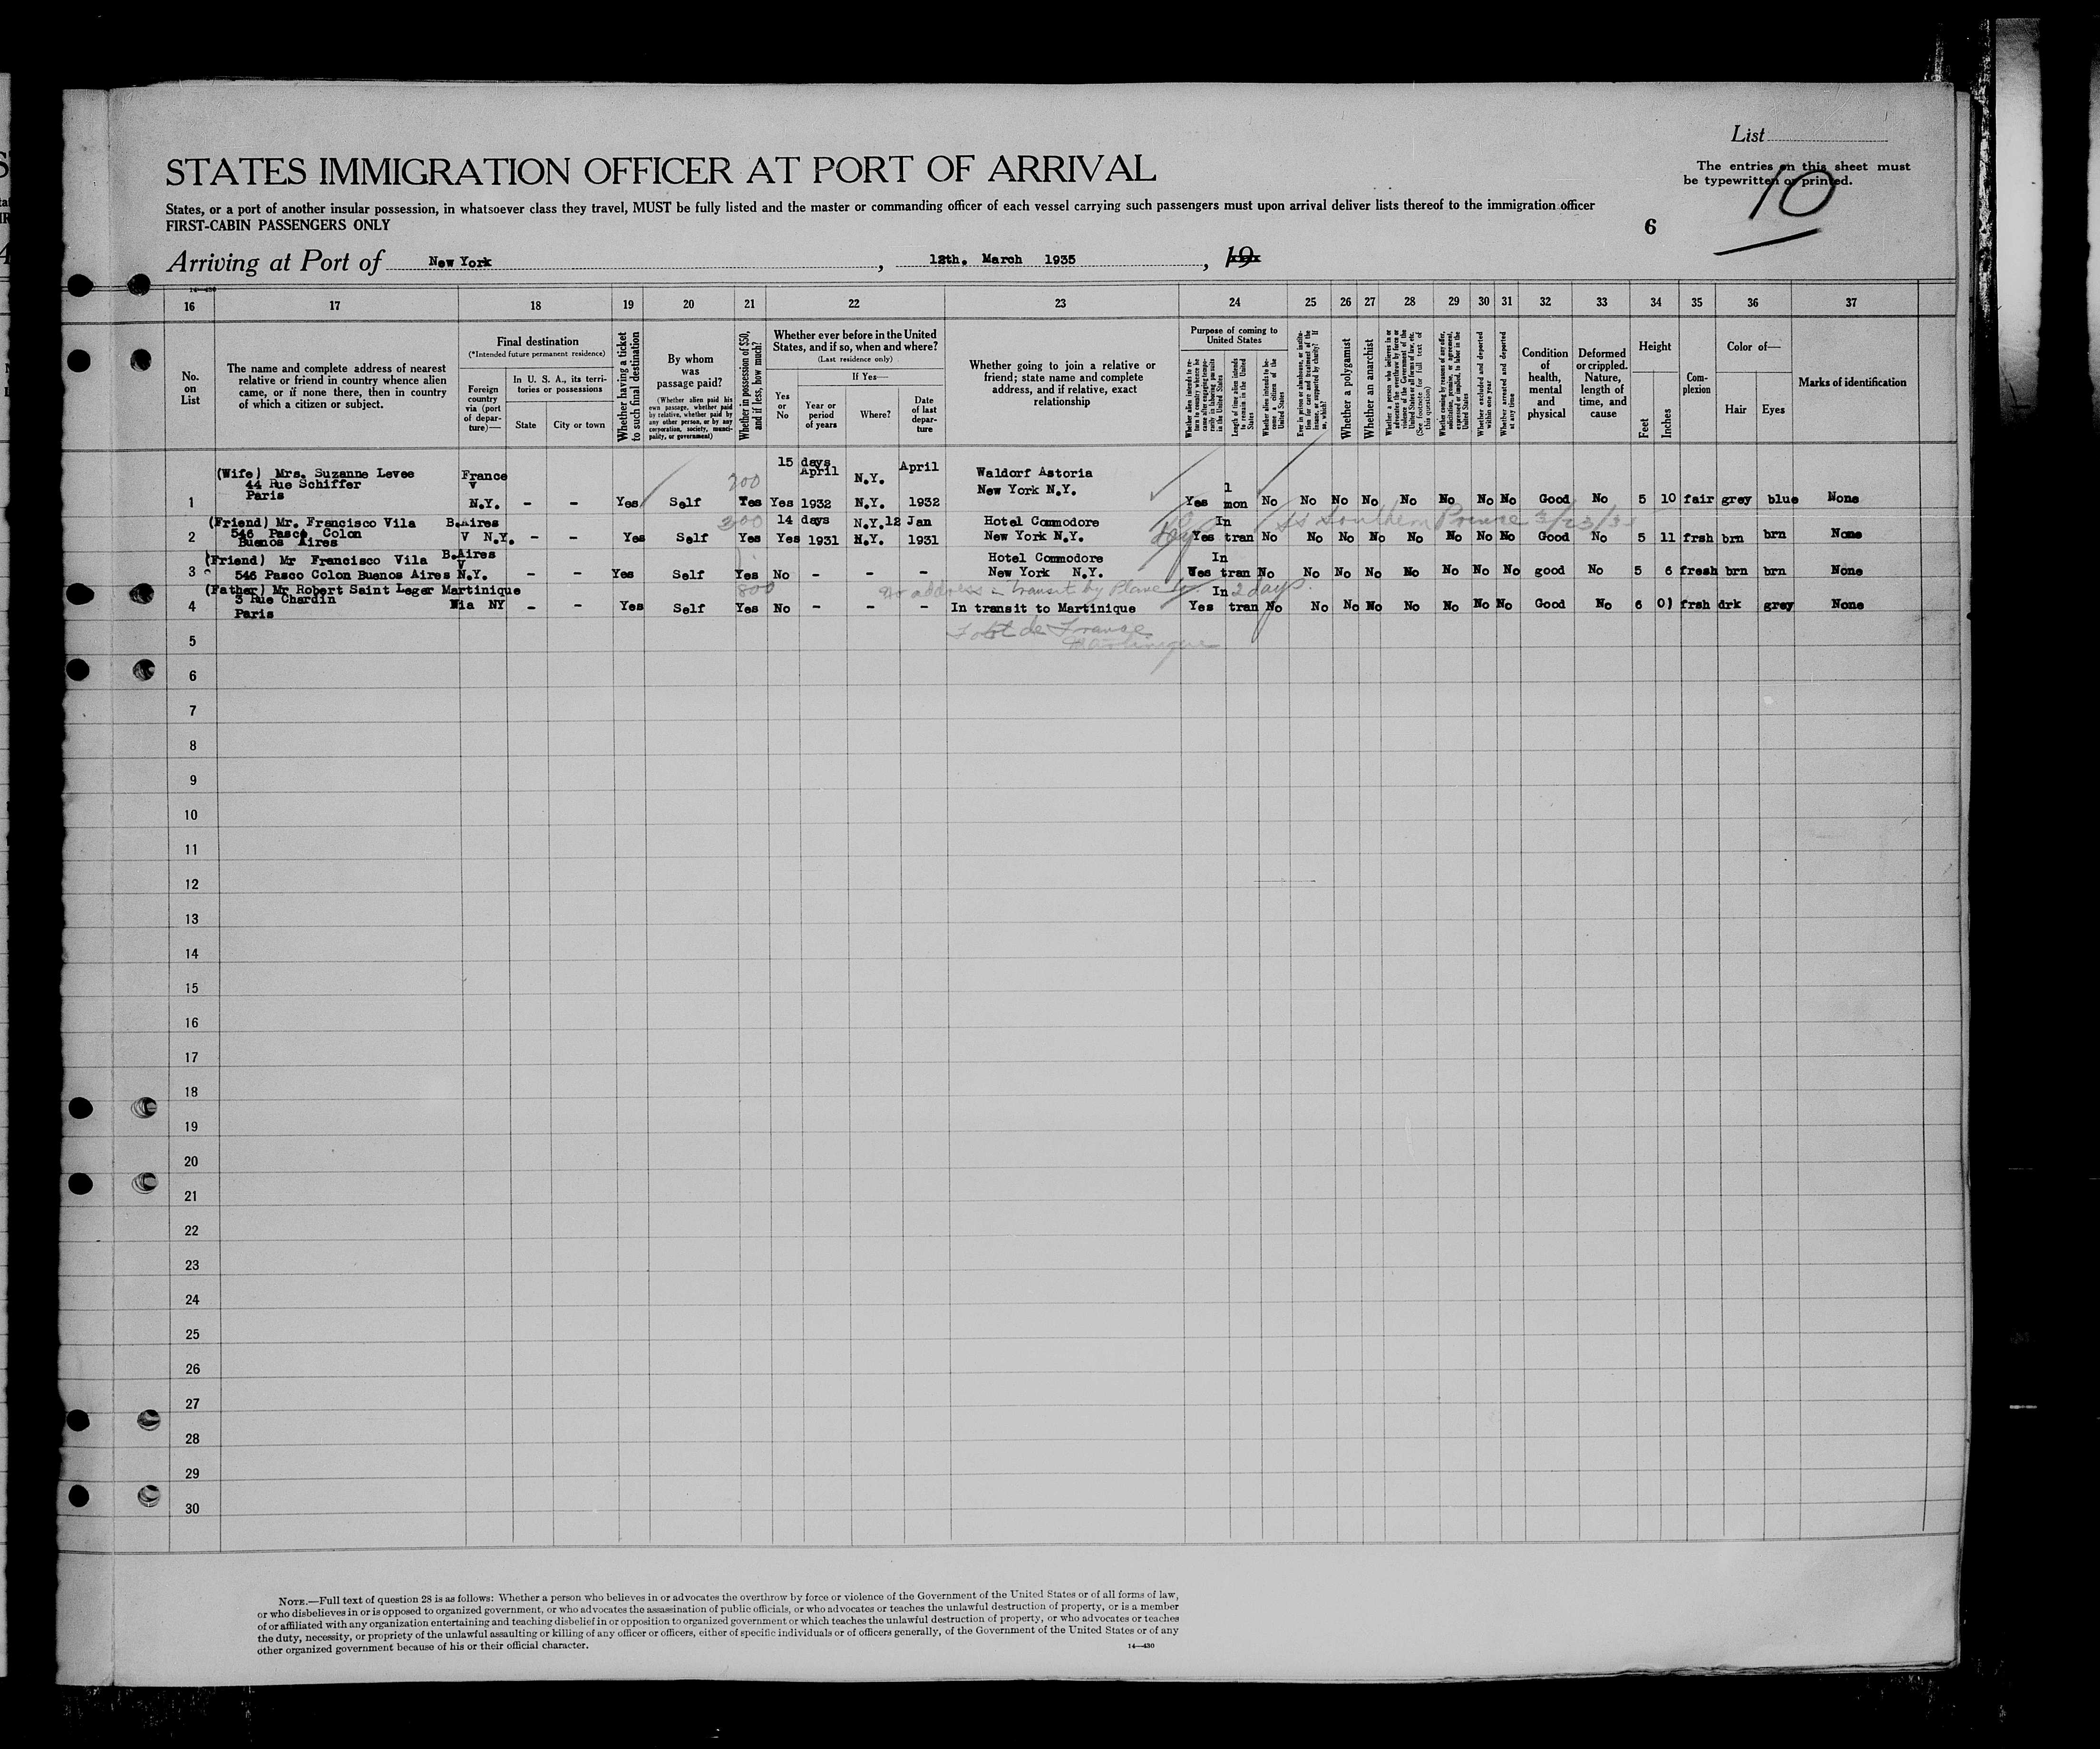 List
The entries on this sheet must
be typewritten or printed.
10
STATES IMMIGRATION OFFICER AT PORT OF ARRIVAL
States, or a port of another insular possession, in whatsoever class they travel, MUST be fully listed and the master or commanding officer of each vessel carrying such passengers must upon arrival deliver lists thereof to the immigration officer
FIRST-CABIN PASSENGERS ONLY
6
Arriving at Port of New York, 12th. March 1935, 19
14—430
16 17 18 19 20 21 22 23 24 25 26 27 28 29 30 31 32 33 34 35 36 37
No.
on
List
The name and complete address of nearest
relative or friend in country whence alien
came, or if none there, then in country
of which a citizen or subject.
Final destination
(*Intended future permanent residence)
Foreign
country
via (port
of depar-
ture)—
In U. S. A., its terri-
tories or possessions
State City or town
Whether having a ticket
to such final destination
By whom
was
passage paid?
(Whether alien paid his
own passage, whether paid
by relative, whether paid by
any other person, or by any
corporation, society, munici-
pality, or government)
Whether in possession of $50,
and if less, how much?
Whether ever before in the United
States, and if so, when and where?
(Last residence only)
If Yes—
Yes
or
No
Year or
period
of years
Where?
Date
of last
depar-
ture
Whether going to join a relative or
friend; state name and complete
address, and if relative, exact
relationship
Purpose of coming to
United States
Whether alien intends to re-
turn to country whence he
came after engaging tempo-
rarily in laboring pursuits
in the United States
Length of time alien intends
to remain in the United
States
Whether alien intends to be-
come a citizen of the
United States
Ever in prison or almshouse, or institu-
tion for care and treatment of the
insane, or supported by charity? If
so, which?
Whether a polygamist
Whether an anarchist
Whether a person who believes in or
advocates the overthrow by force or
violence of the Government of the
United States or all forms of law, etc.
(See footnote for full text of
this question)
Whether coming by reason of any offer,
solicitation, promise, or agreement,
expressed or implied, to labor in the
United States
Whether excluded and deported
within one year
Whether arrested and deported
at any time
Condition
of
health,
mental
and
physical
Deformed
or crippled.
Nature,
length of
time, and
cause
Height
Feet Inches
Com-
plexion
Color of—
Hair Eyes
Marks of identification
(Wife) Mrs. Suzanne Levee France 15 days April April Waldorf Astoria
44 Rue Schiffer V 200 N.Y. New York N.Y. 1
1 Paris N.Y. - - Yes Self Yes Yes 1932 N.Y. 1932 Yes mon No No No No No No No No Good No 5 10 fair grey blue None
(Friend) Mr. Francisco Vila B.Aires 300 14 days N.Y. 12 Jan Hotel Commodore In SS Southern Prince 3/23/35
2 546 Pasco Colon V N.Y. - - Yes Self Yes Yes 1931 N.Y. 1931 New York N.Y. Yes tran No No No No No No No No Good No 5 11 frsh brn brn None
Buenos Aires
(Friend) Mr Francisco Vila B.Aires Hotel Commodore In
V
3 546 Pasco Colon Buenos Aires N.Y. - - Yes Self Yes No - - - New York N.Y. Yes tran No No No No No No No No good No 5 6 fresh brn brn None
(Father) Mr Robert Saint Leger Martinique 800 no address in transit by Plane In 2 days.
4 3 Rue Chardin Via NY - - Yes Self Yes No - - - In transit to Martinique Yes tran No No No No No No No No Good No 6 0) frsh drk grey None
Paris
Fort de France
Martinique
5
6
7
8
9
10
11
12
13
14
15
16
17
18
19
20
21
22
23
24
25
26
27
28
29
30
NOTE.—Full text of question 28 is as follows: Whether a person who believes in or advocates the overthrow by force or violence of the Government of the United States or of all forms of law,
or who disbelieves in or is opposed to organized government, or who advocates the assassination of public officials, or who advocates or teaches the unlawful destruction of property, or is a member
of or affiliated with any organization entertaining and teaching disbelief in or opposition to organized government or which teaches the unlawful destruction of property, or who advocates or teaches
the duty, necessity, or propriety of the unlawful assaulting or killing of any officer or officers, either of specific individuals or of officers generally, of the Government of the United States or of any
other organized government because of his or their official character.
14—430